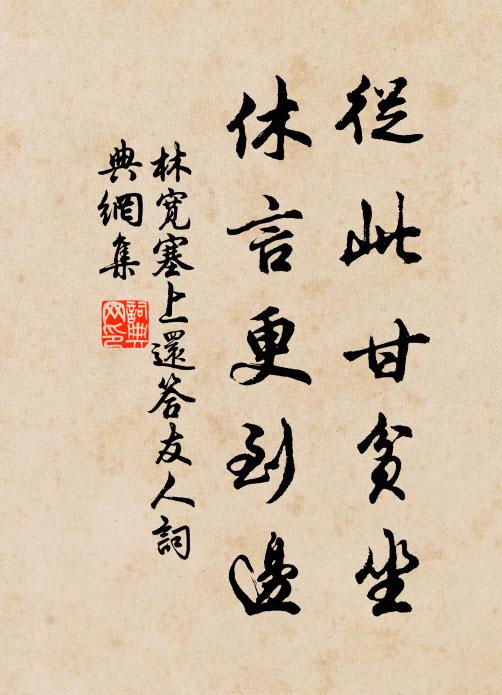 從此甘貧坐
休言更到邊
林寬塞上還答友人詞
典網集
詞典网印